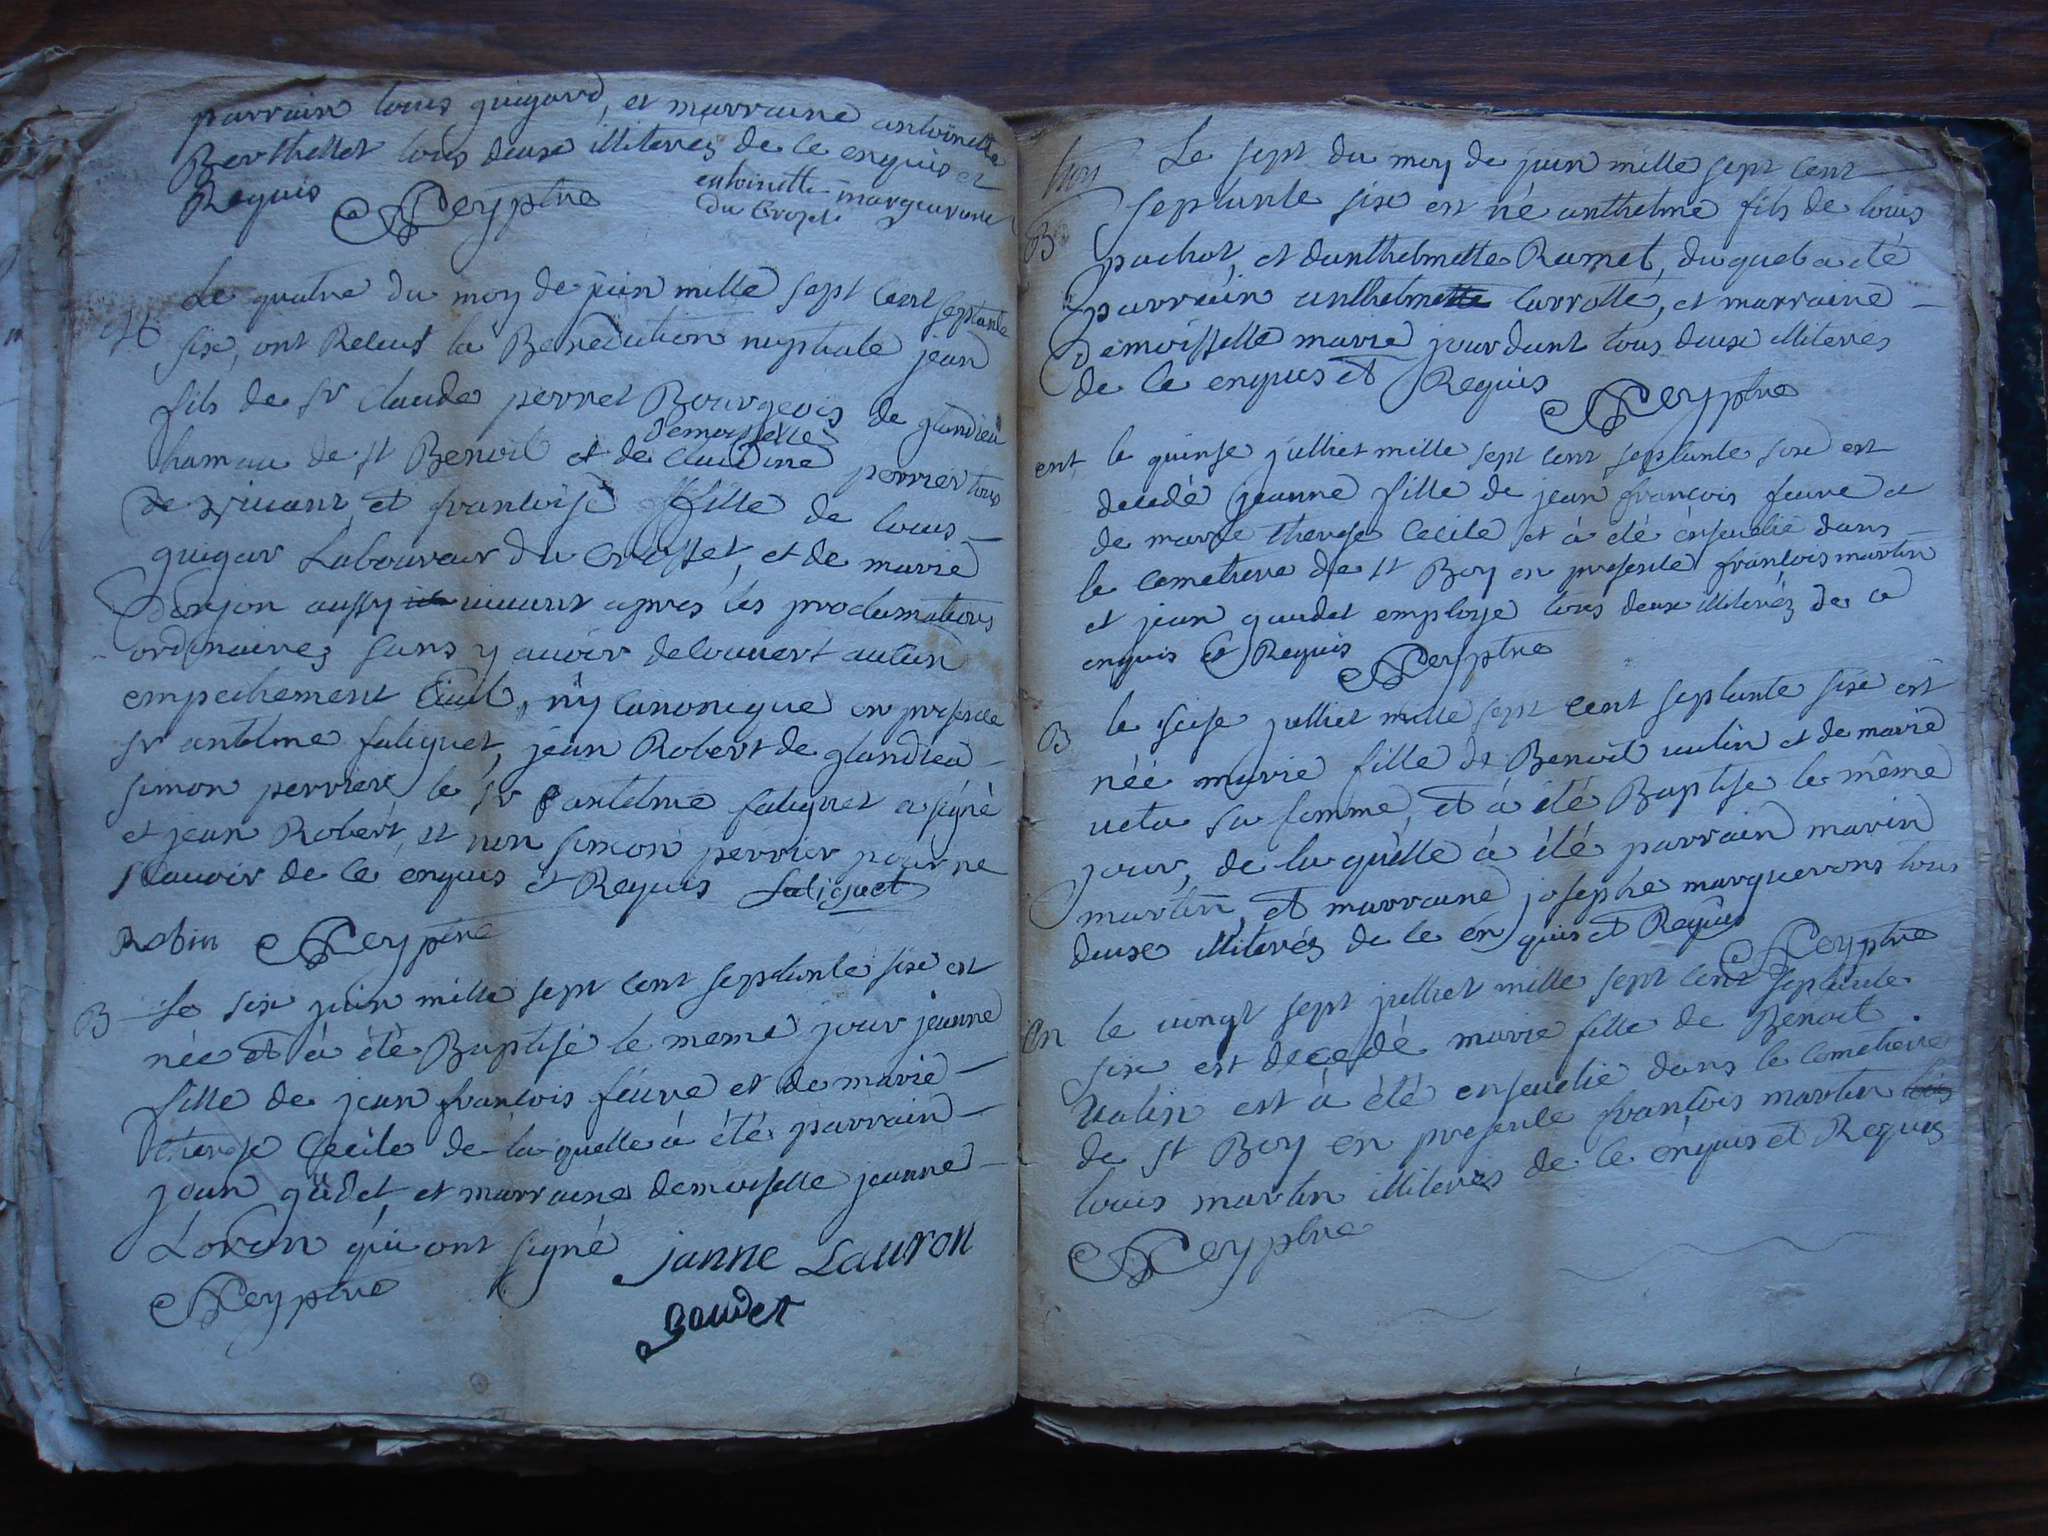 parrain louis guigard, et marraine antoinette
Berthellet tous deux illiterez de ce enquis et
Requis NPey ptre antoinette marguerone
du Crozet
M Le quatre du moy de juin mille sept cent septante
six, ont Receus la Benediction nuptiale jean
fils de sr claude perret Bourgeois de glandieu
hameau de st Benoit et de demoiselle claudine perrier tous
de vivant, et francoise fille de louis
guigar Laboureur du Crosset, et de marie
Derjon aussy vivant apres les proclamations
ordinaires sans y avoir decouvert aucun
empechement Civil, ny Canonique en presence
sr antelme faliquet, jean Robert de glandieu
simon perrier le sr antelme faliquet a signé
et jean Robert, et non simon perrier pour ne
scavoir de ce enquis et Requis Faliquet
Robin NPey ptre
B Le six juin mille sept cent septante six est
née et á été Baptisé le meme jour jeanne
fille de jean francois féuvre et de marie
therese Cecile de la quelle á été parrain
jean gudet, et marraine demoiselle jeanne
Loron qui ont signé janne Lauron
NPey ptre Goudet
Le sept du moy de juin mille sept cent
septante six est né anthelme fils de louis
B pochot, et danthelmette Ramel, du quel a été
parrain anthelme Carrotte, et marraine
Demoisselle marie jourdant tous deux illiteres
de ce enques et Requis NPey ptre
ent le quinse julliet mille sept cent septante six est
decedé jeanne fille de jean francois feuvre et
de marie therese Cecile et á été enseuelie dans
le cemetiere de st Boy en presence francois martin
et jean gaudet employe tous deux illiterés de ce
enquis et Requis NPey ptre
B le seise julliet mille sept cent septante six est
néé marie fille de Benoit vulin et de marie
veta sa femme, et á été Baptise le même
jour, de la quelle á été parrain marin
martin, et marraine josephe marguerons tous
deux illiterés de ce enquis et Requis NPey ptre
En le vingt sept julliet mille sept cent septante
six est decedé marie fille de Benoit
Vulin est á été enseuelie dans le cemetiere
de st Boy en presence francois martin
louis martin illiterés de ce enquis et Requis
NPey ptre